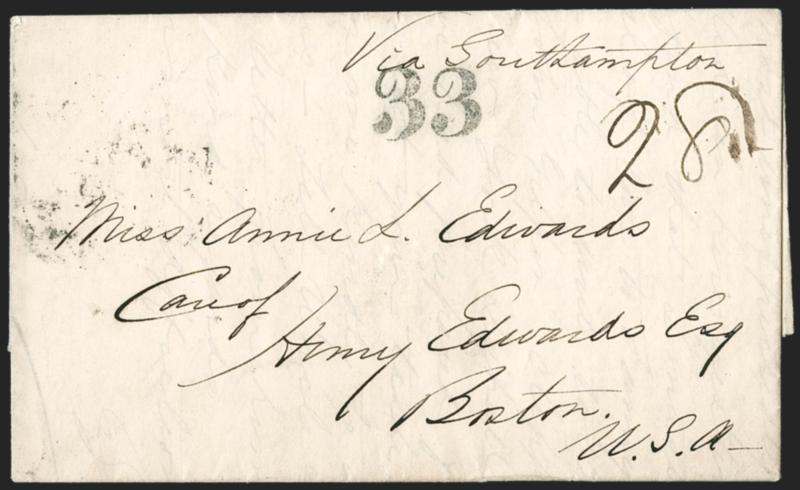 Via Southampton
33
28
Miss Annie L. Edwards
Care of
Henry Edwards Esq
Boston.
U.S.A